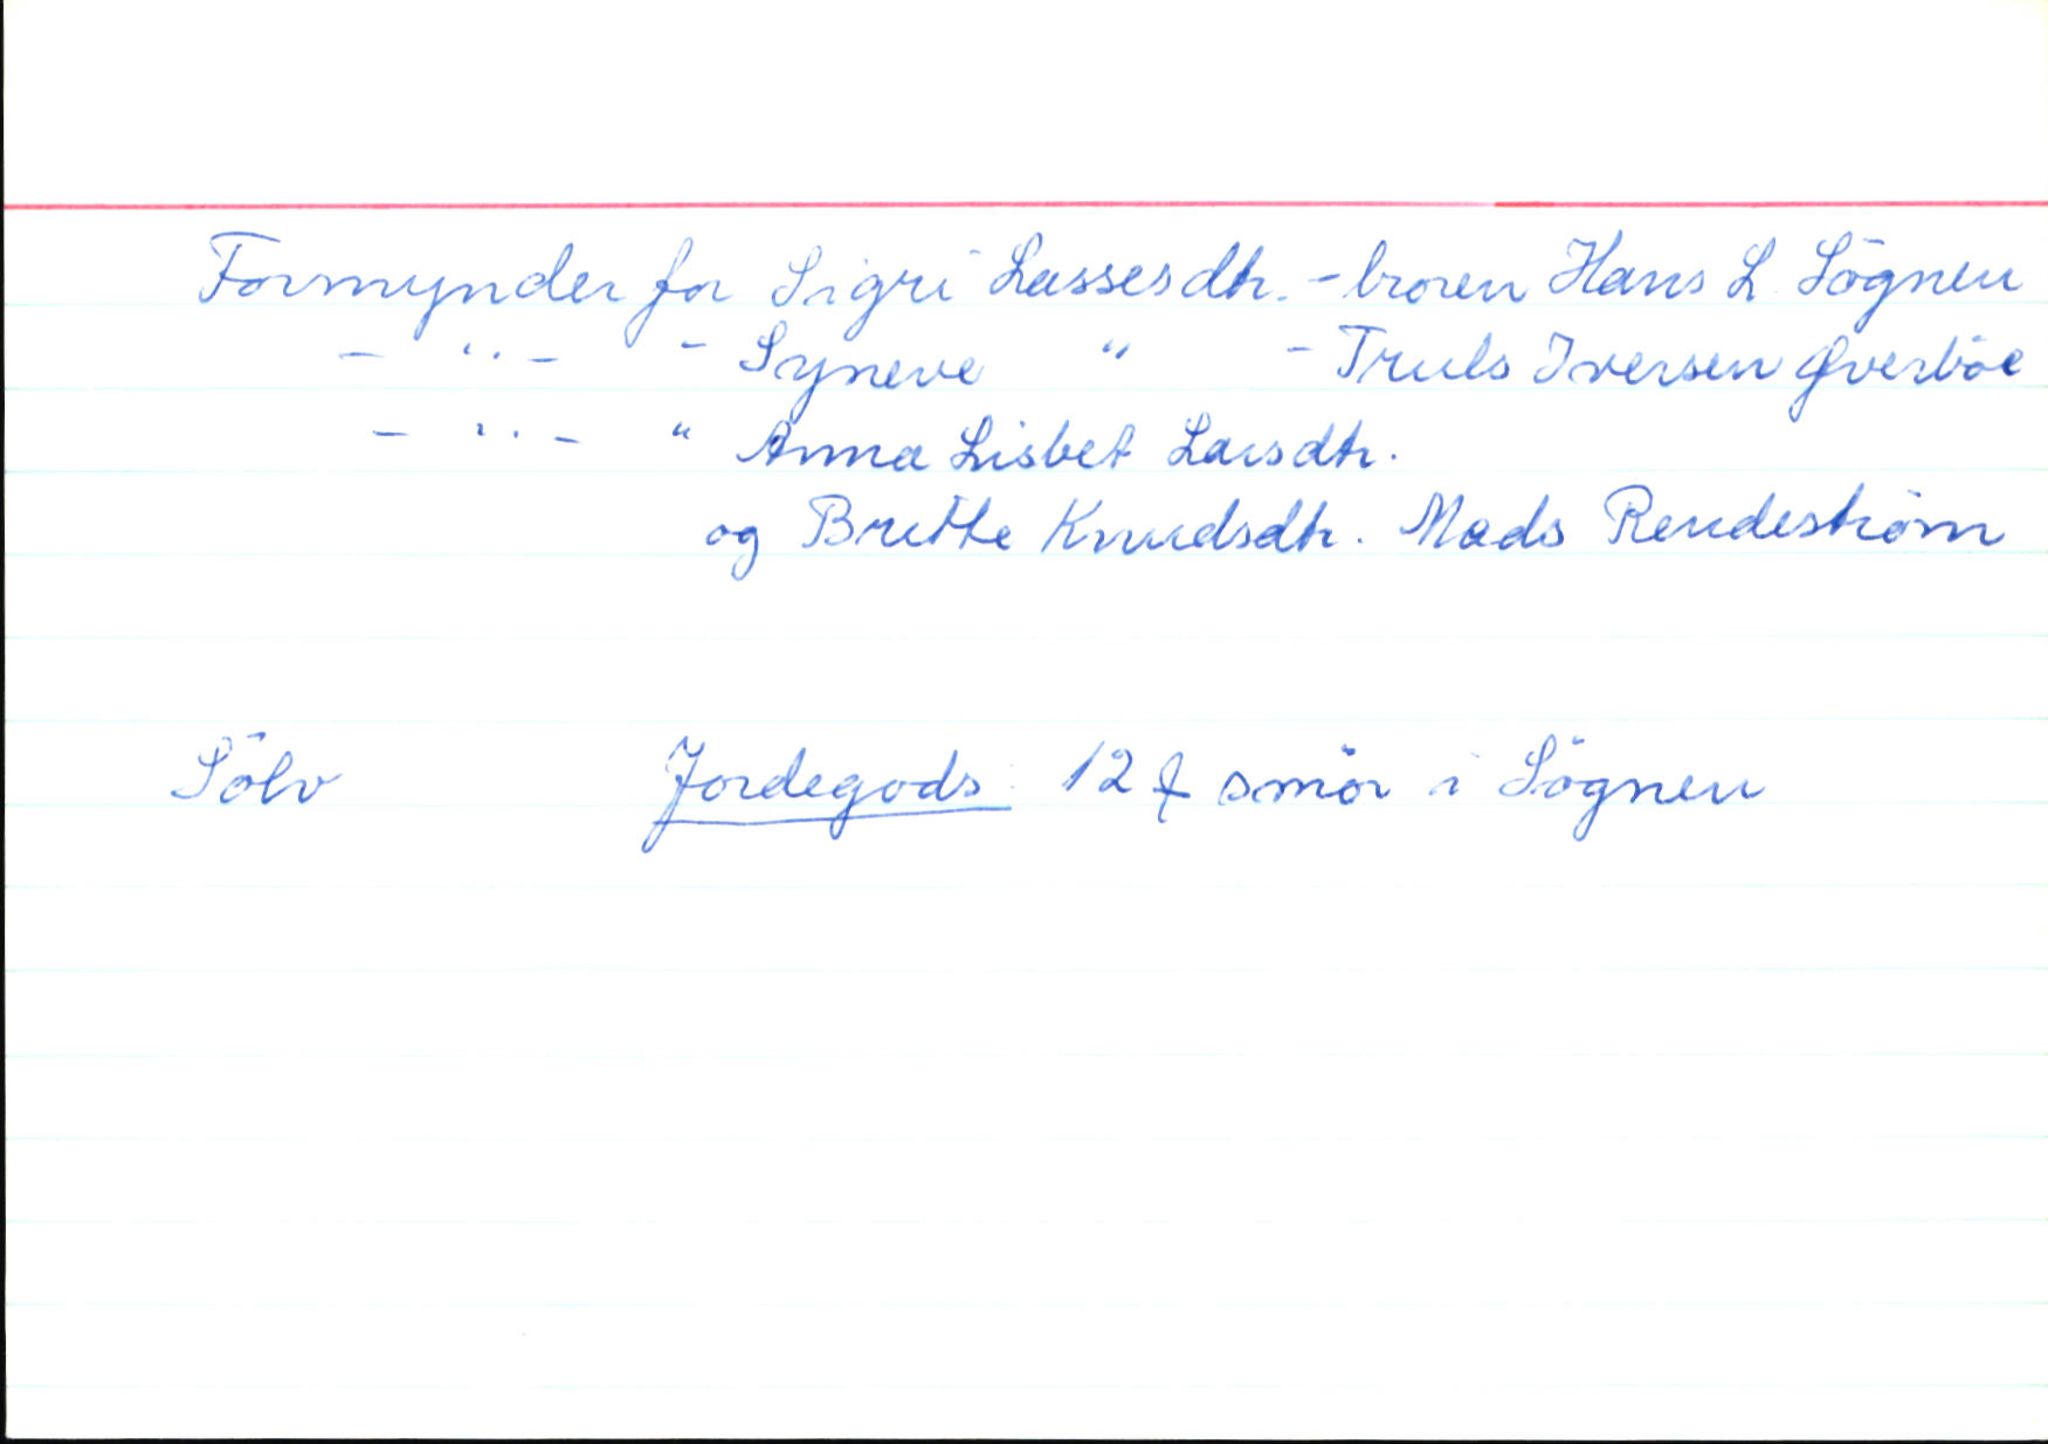 Formynder for Sigri Lassesdtr. - broren Hans L. Sögnen
- " - - Syneve " - Truls Iversen Øverböe
- " - " Anna Lisbet Larsdtr.
og Britte Knudsdtr. Mads Rendeström
Sölv Jordegods: 12 ₤ smör i Sögnen